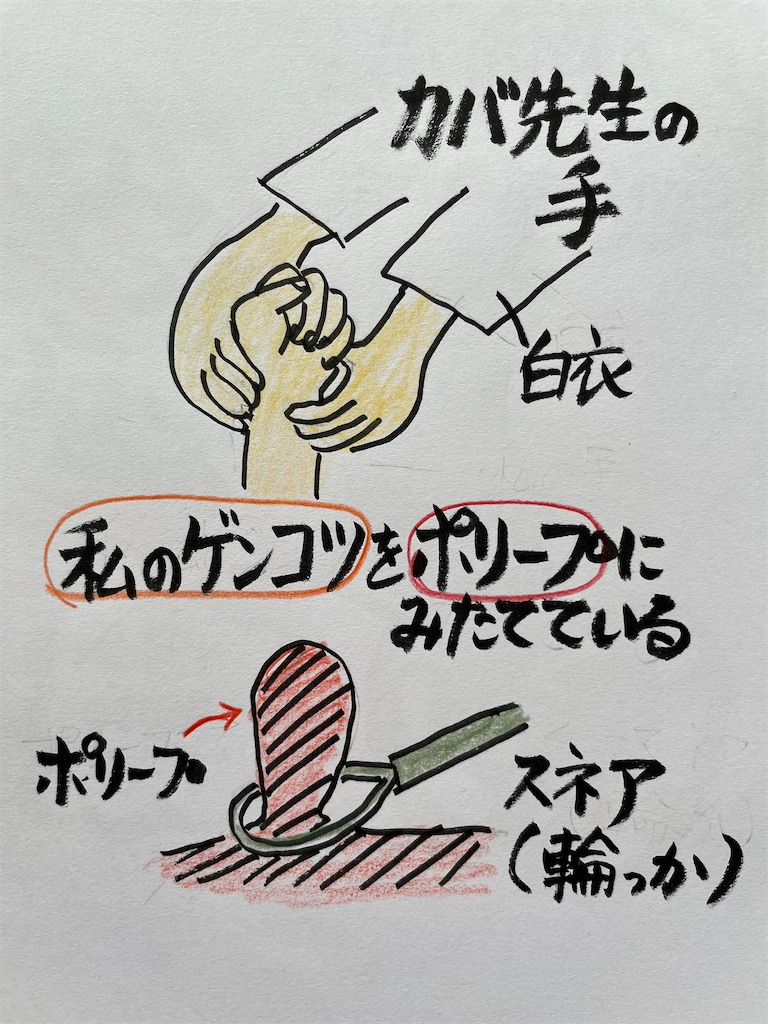 カバ先生の
手
白衣
私のゲンコツをポリープに
みたてている
ポリープ
スネア
(輪っか)